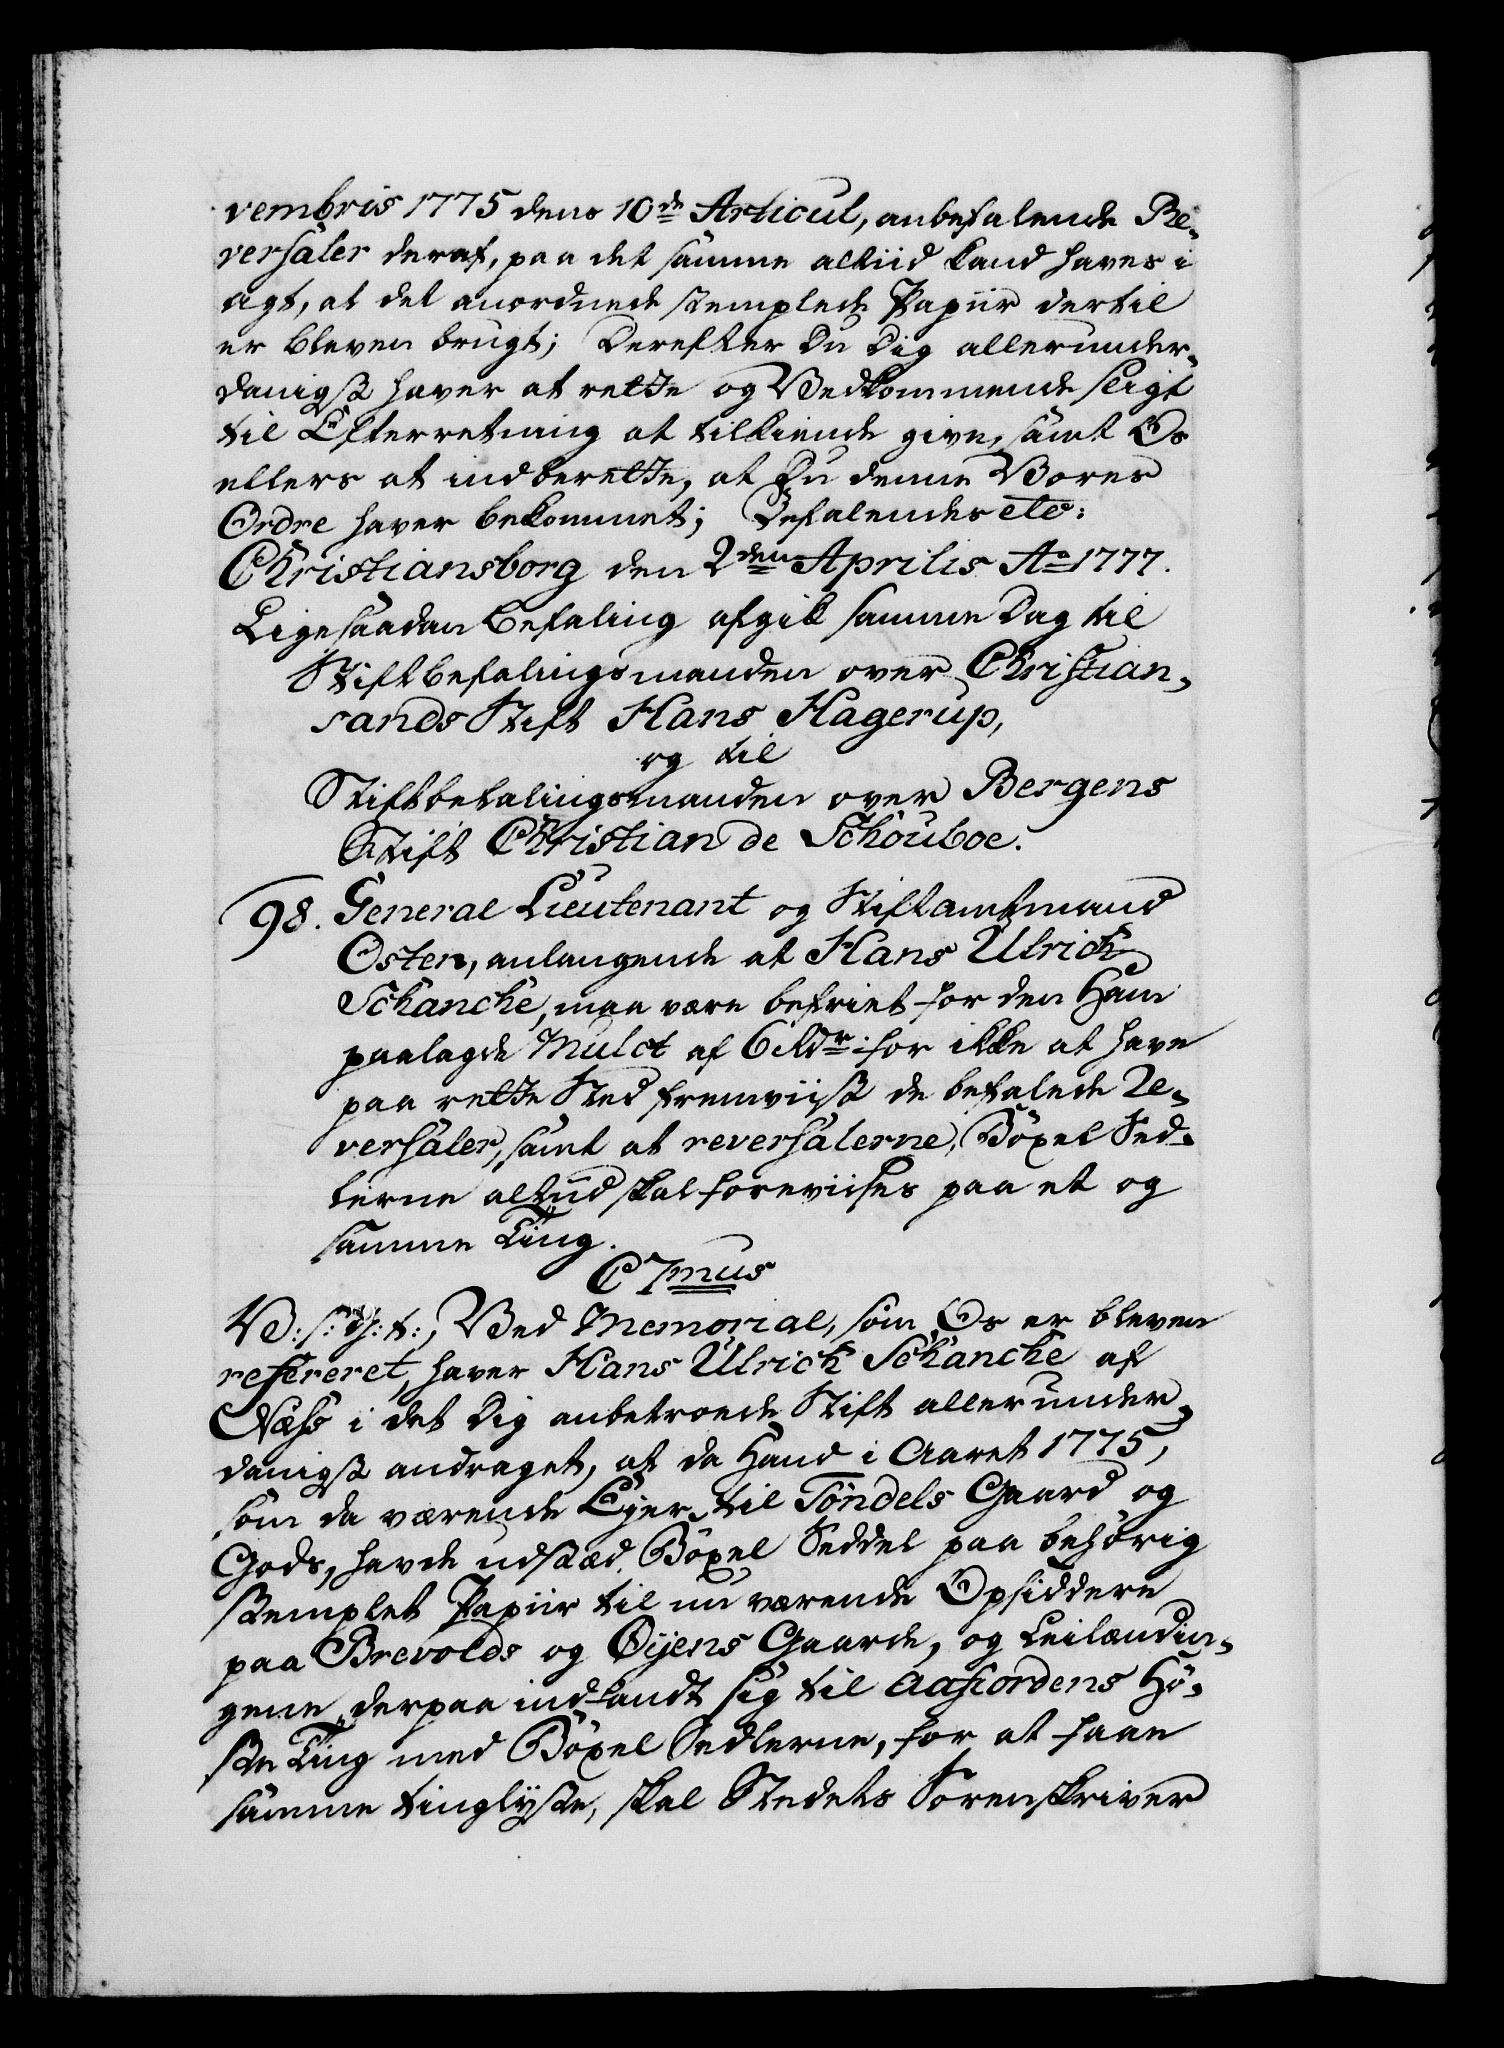 vembris 1775 dens 10de Articul, anbefalende Re-
versaler deraf, paa det samme altiid kand haves i
agt, at det anordnede stemplede Papiir dertil
er bleven brugt; Derefter Du Dig allerunder-
danigst haver at rette og Vedkommende sligt
til Efterretning at tilkiende give, samt Os
ellers at indberette, at Du denne Vores
Ordre haver bekommet; Befalendes etc:
Christiansborg den 2den Aprilis Ao 1777.
Ligesaadan Befaling afgik samme Dag til
Stiftbefalingsmanden over Christian-
sands Stift Hans Hagerup,
og til
Stiftbefalingsmanden over Bergens
Stift Christian de Schouboe.
98. General Lieutenant og Stiftamtmand
Osten, anlangende at Hans Ulrich
Schanche, maa være befriet for den Ham
paalagde Mulct af 6 Rdr: for ikke at have
paa rette Sted fremviist de befalede Re-
versaler, samt at reversalerne, Böxel Sed-
lerne altiid skal foreviises paa et og
samme Ting.
C 7mus
V: s: G: t:, Ved Memorial, som Os er bleven
refereret, haver Hans Ulrich Schanche af
Næss i det Dig anbetroede Stift allerunder-
danigst andraget, at da Hand i Aaret 1775,
som da værende Ejer til Töndels Gaard og
Gods, havde udstæd Böxel Seddel paa behörig
stemplet Papiir til nu værende Opsiddere
paa Brevolds og Øijens Gaarde, og Leilændin-
gene derpaa indfandt sig til Aafiordens Hö-
ste Ting med Böxel Sedlerne, for at faae
samme tinglyste, skal Stedets Sorenskriver